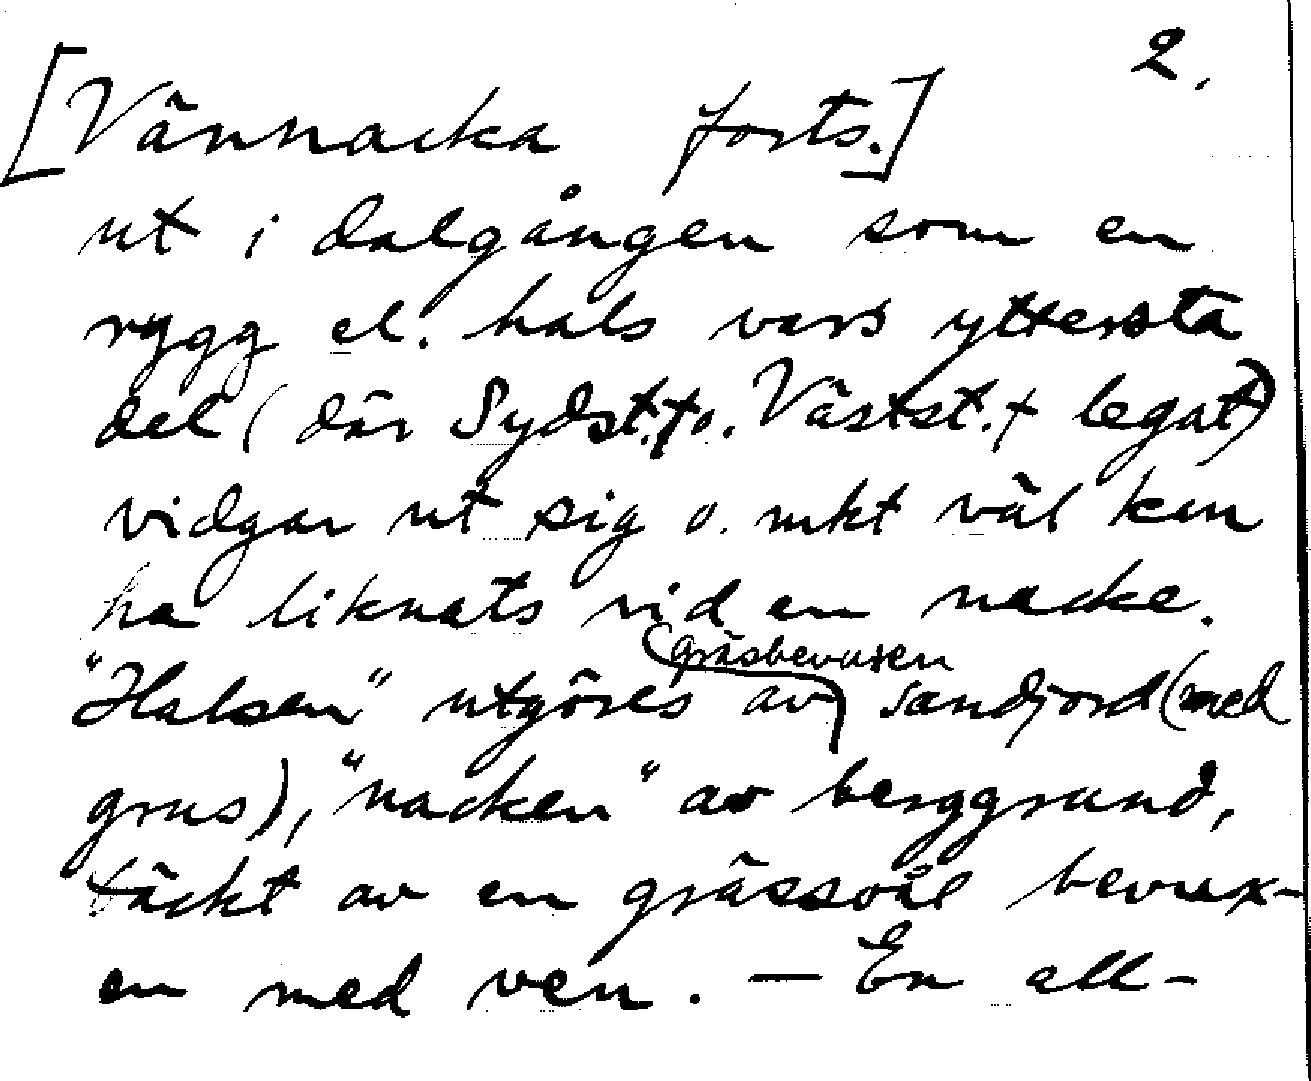 2.
[Vännacka forts.]
ut i dalgången som en
rygg el. hals vars yttersta
del (där Sydst.† o. Västst.† legat)
vidgar ut sig o. mkt väl kan
ha liknats vid en nacke.
gräsbevuxen
"Halsen" utgöres av sandjord (med
grus), "nacken" av berggrund,
täckt av en grässvål bevux-
en med ven. – En all-